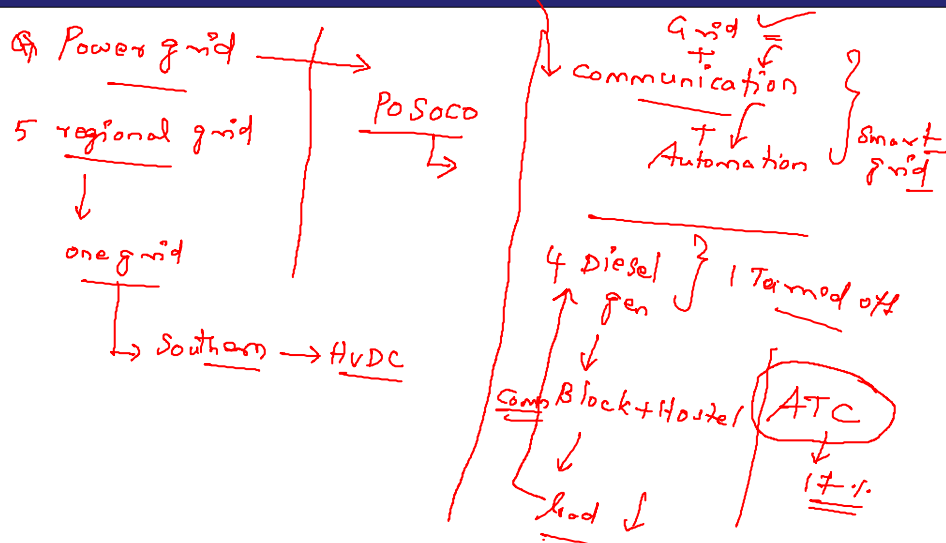 Power grid
POSOCO
5 regional grid
one grid
Southern → HVDC
Grid
+
Communication
+
Automation
Smart
grid
4 Diesel
gen
1 Turned off
Comp Block + Hostel
load ↓
ATC
17 %